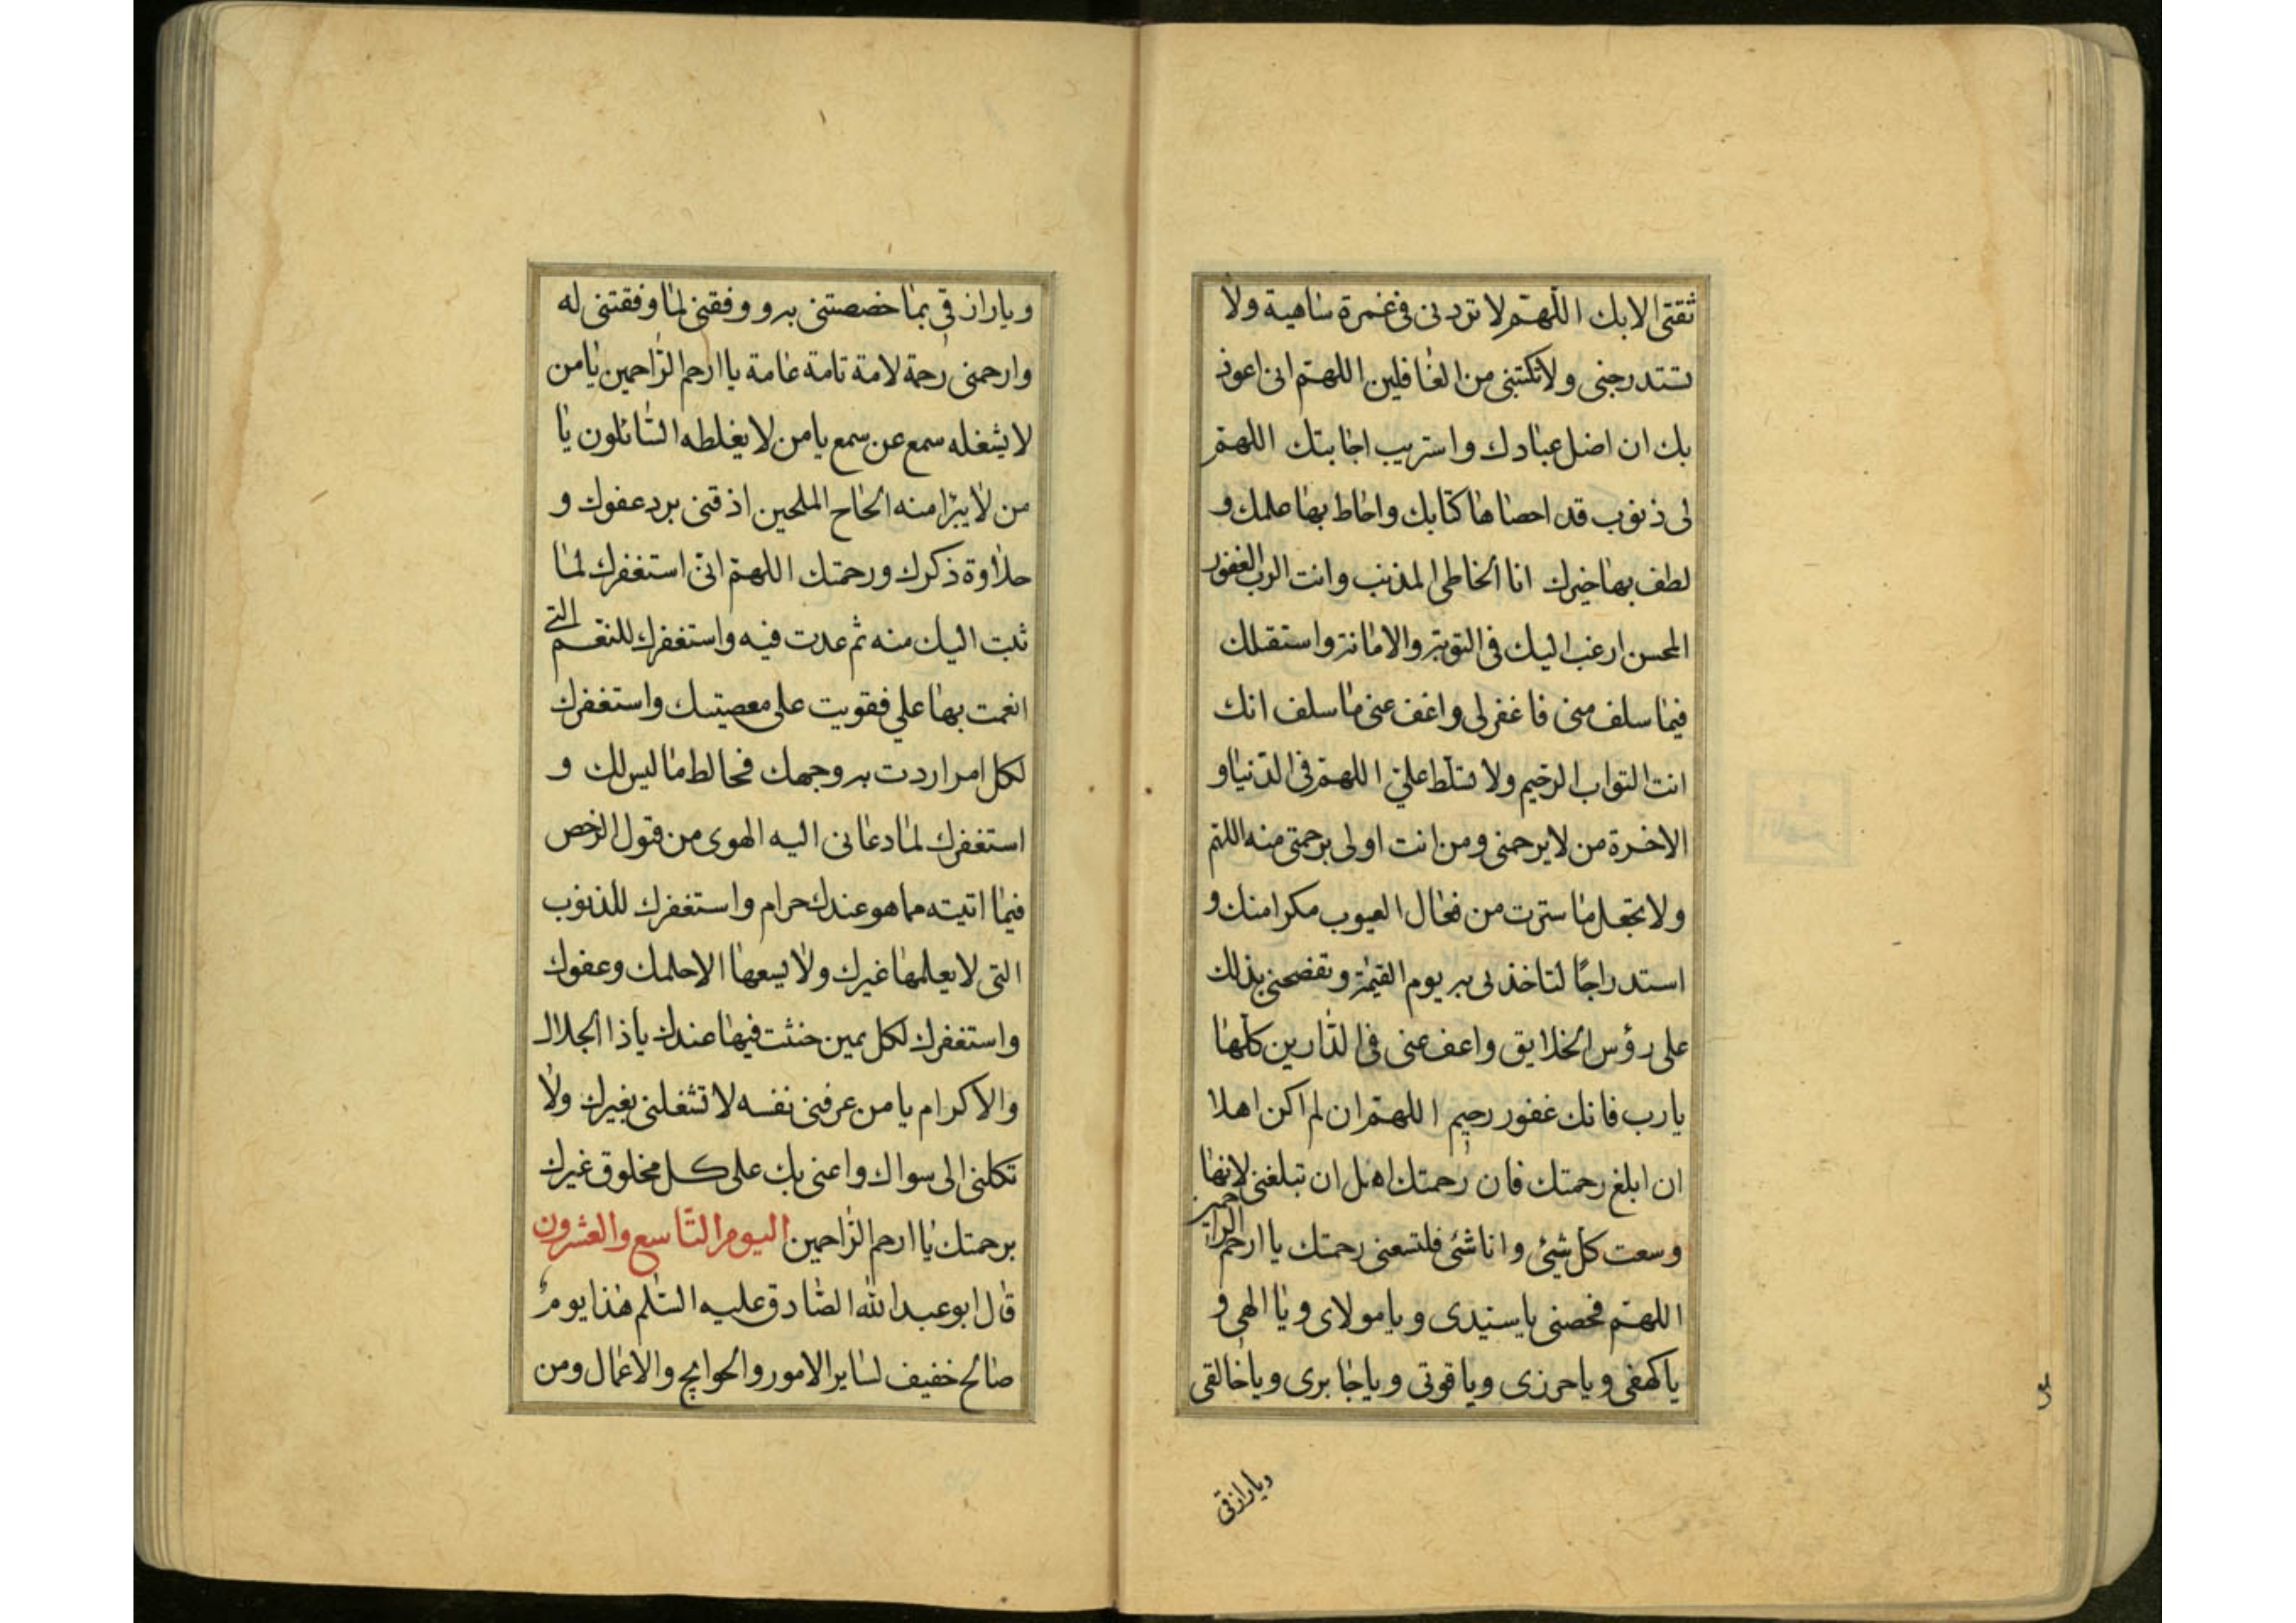 ثقتى الا بك اللهم لا تردنى فى غمرة ساهية ولا
تستدرجنى ولا تكتبنى من الغافلين اللهم انى اعوذ
بك ان اضل عبادك واستريب اجابتك اللهم
لى ذنوب قد احصاها كتابك واحاط بها علمك و
لطف بها خبرك انا الخاطى المذنب وانت الرب الغفور
المحسن ارغب اليك فى التوبة والامانة واستقيلك
فيما سلف منى فاغفر لى واعف عنى ما سلف انك
انت التواب الرحيم ولا تسلط على اللهم فى الدنيا و
الاخرة من لا يرحمنى ومن انت اولى برحمتى منه اللهم
ولا تجعل ما سترت من فعال العيوب مكرا منك و
استدراجًا لتاخذنى به يوم القيمة وتفضحنى بذلك
على رؤس الخلايق واعف عنى فى الدارين كلها
يا رب فانك غفور رحيم اللهم ان لم اكن اهلا
ان ابلغ رحمتك فان رحمتك اهل ان تبلغنى لانها
وسعت كل شيئ وانا شئ فلتسعنى رحمتك يا ارحم الراحمين
اللهم فخصنى يا سيدى ويا مولاى ويا الهى و
يا كهفى ويا حرزى ويا قوتى ويا جابرى ويا خالقى
ويا رازقى
ويا رازقى بما خصصتنى به ووفقنى لما وفقتنى له
وارحمنى رحمة لامة تامة عامة يا ارحم الراحمين يا من
لا يشغله سمع عن سمع يا من لا يغلطه السائلون يا
من لا يبرا منه الحاح الملحين اذقنى برد عفوك و
حلاوة ذكرك ورحمتك اللهم انى استغفرك لما
تبت اليك منه ثم عدت فيه واستغفرك للنعم التى
انعمت بها على فقويت على معصيتك واستغفرك
لكل امر اردت به وجهك فخالط ما ليس لك و
استغفرك لما دعانى اليه الهوى من قبول الرخص
فيما اتيته مما هو عندك حرام واستغفرك للذنوب
التى لا يعلمها غيرك ولا يسعها الا حلمك وعفوك
واستغفرك لكل يمين حنثت فيها عندك يا ذا الجلال
والاكرام يا من عرفنى نفسه لا تشغلنى بغيرك ولا
تكلنى الى سواك واعنى بك على كل مخلوق غيرك
برحمتك يا ارحم الراحمين اليوم التاسع والعشرون
قال ابو عبد الله الصادق عليه السلم هذا يوم
صالح خفيف لساير الامور والحوايج والاعمال ومن